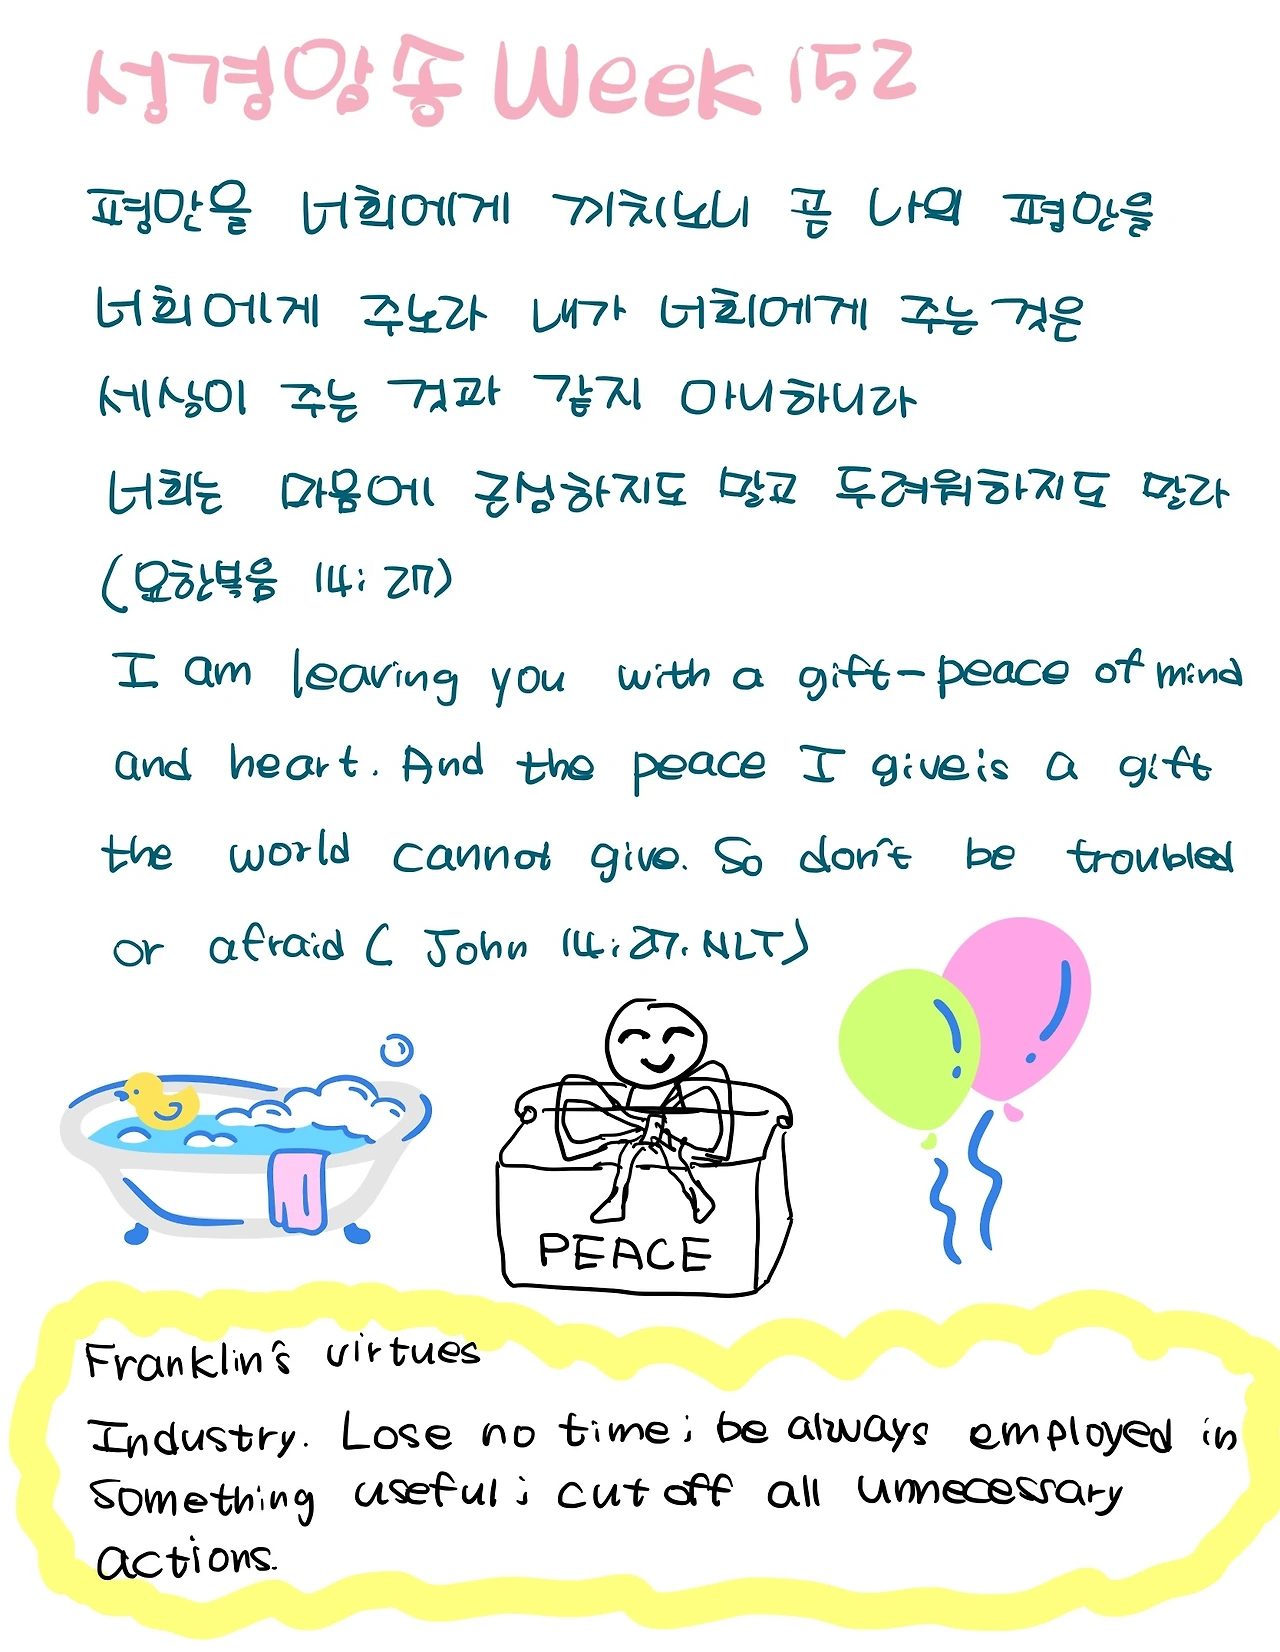 성경암송 Week 152
평안을 너희에게 끼치노니 곧 나의 평안을
너희에게 주노라 내가 너희에게 주는 것은
세상이 주는 것과 같지 아니하니라
너희는 마음에 근심하지도 말고 두려워하지도 말라
(요한복음 14:27)
I am leaving you with a gift-peace of mind
and heart. And the peace I give is a gift
the world cannot give. So don't be troubled
or afraid ( John 14:27. NLT)
PEACE
Franklin's virtues
Industry. Lose no time; be always employed in
something useful; cut off all unnecessary
actions.